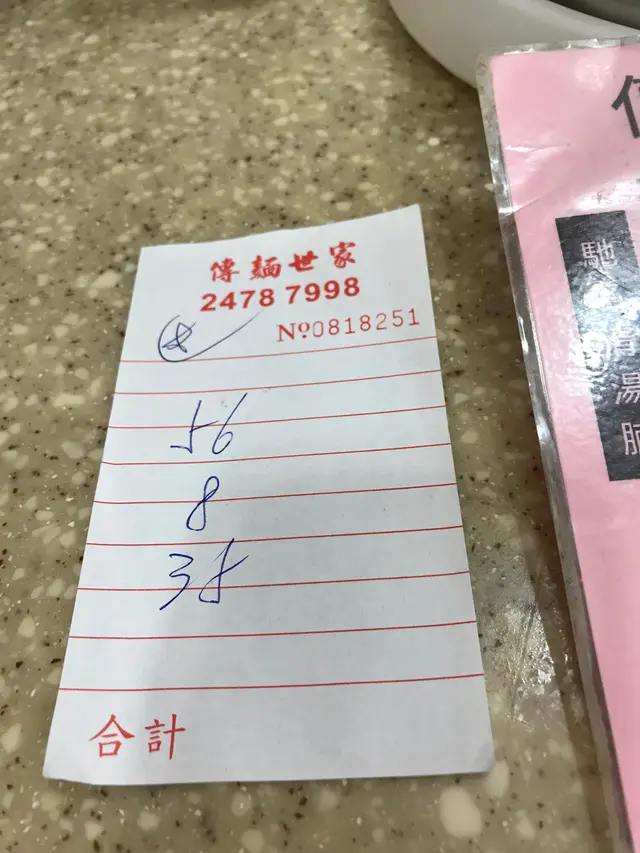 傳麵世家
2478 7998
Nº0818251
56
8
35
合計
馳
湯